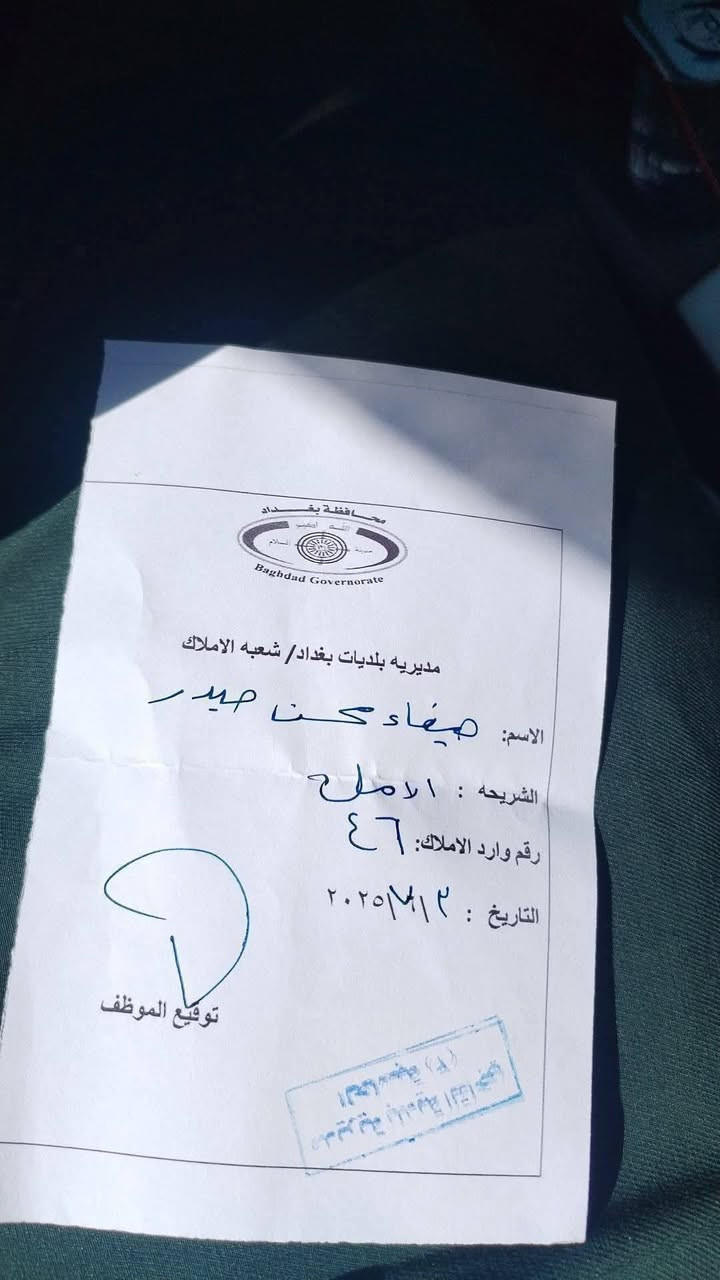 محافظة بغداد
الله أكبر
مدينة السلام
Baghdad Governorate
مديريه بلديات بغداد/ شعبه الاملاك
الاسم: هيفاء محسن حيدر
الشريحه : الارملة
رقم وارد الاملاك: ٤٦
التاريخ : ٣/٧/٢٠٢٥
توقيع الموظف
مديرية بلدية
الحاسبة (٢)